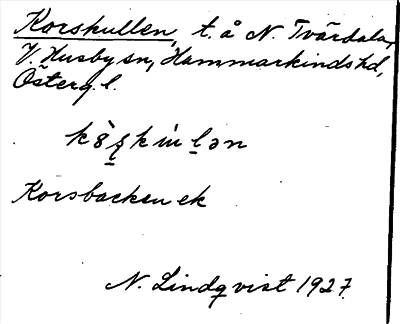 Korskullen, t. å N. Tvärdala,
V. Husby sn, Hammarkinds hd,
Österg. l.
Korsbacken ek
N. Lindqvist 1927.